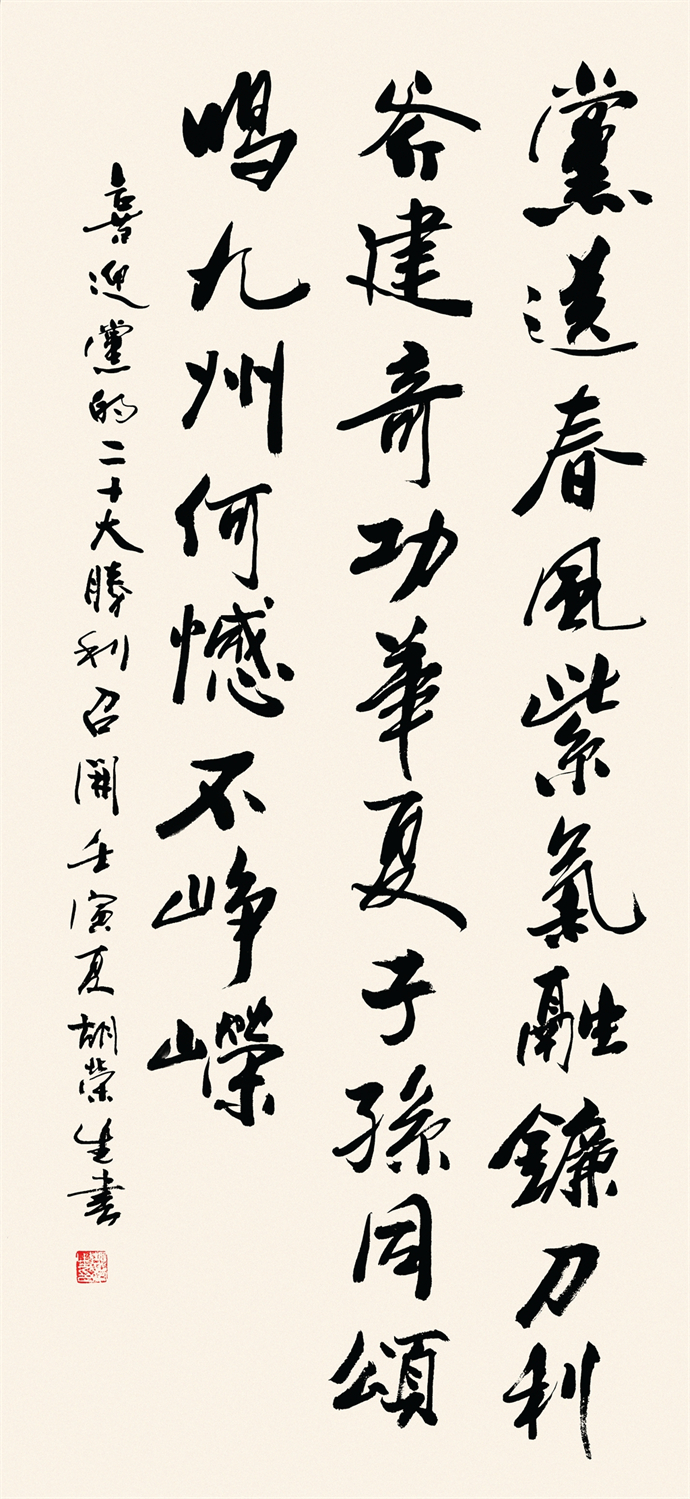 黨送春風紫氣融鐮刀利
斧建奇功華夏子孫同頌
唱九州何憾不崢嶸
喜迎黨的二十大勝利召開壬寅夏胡榮生書